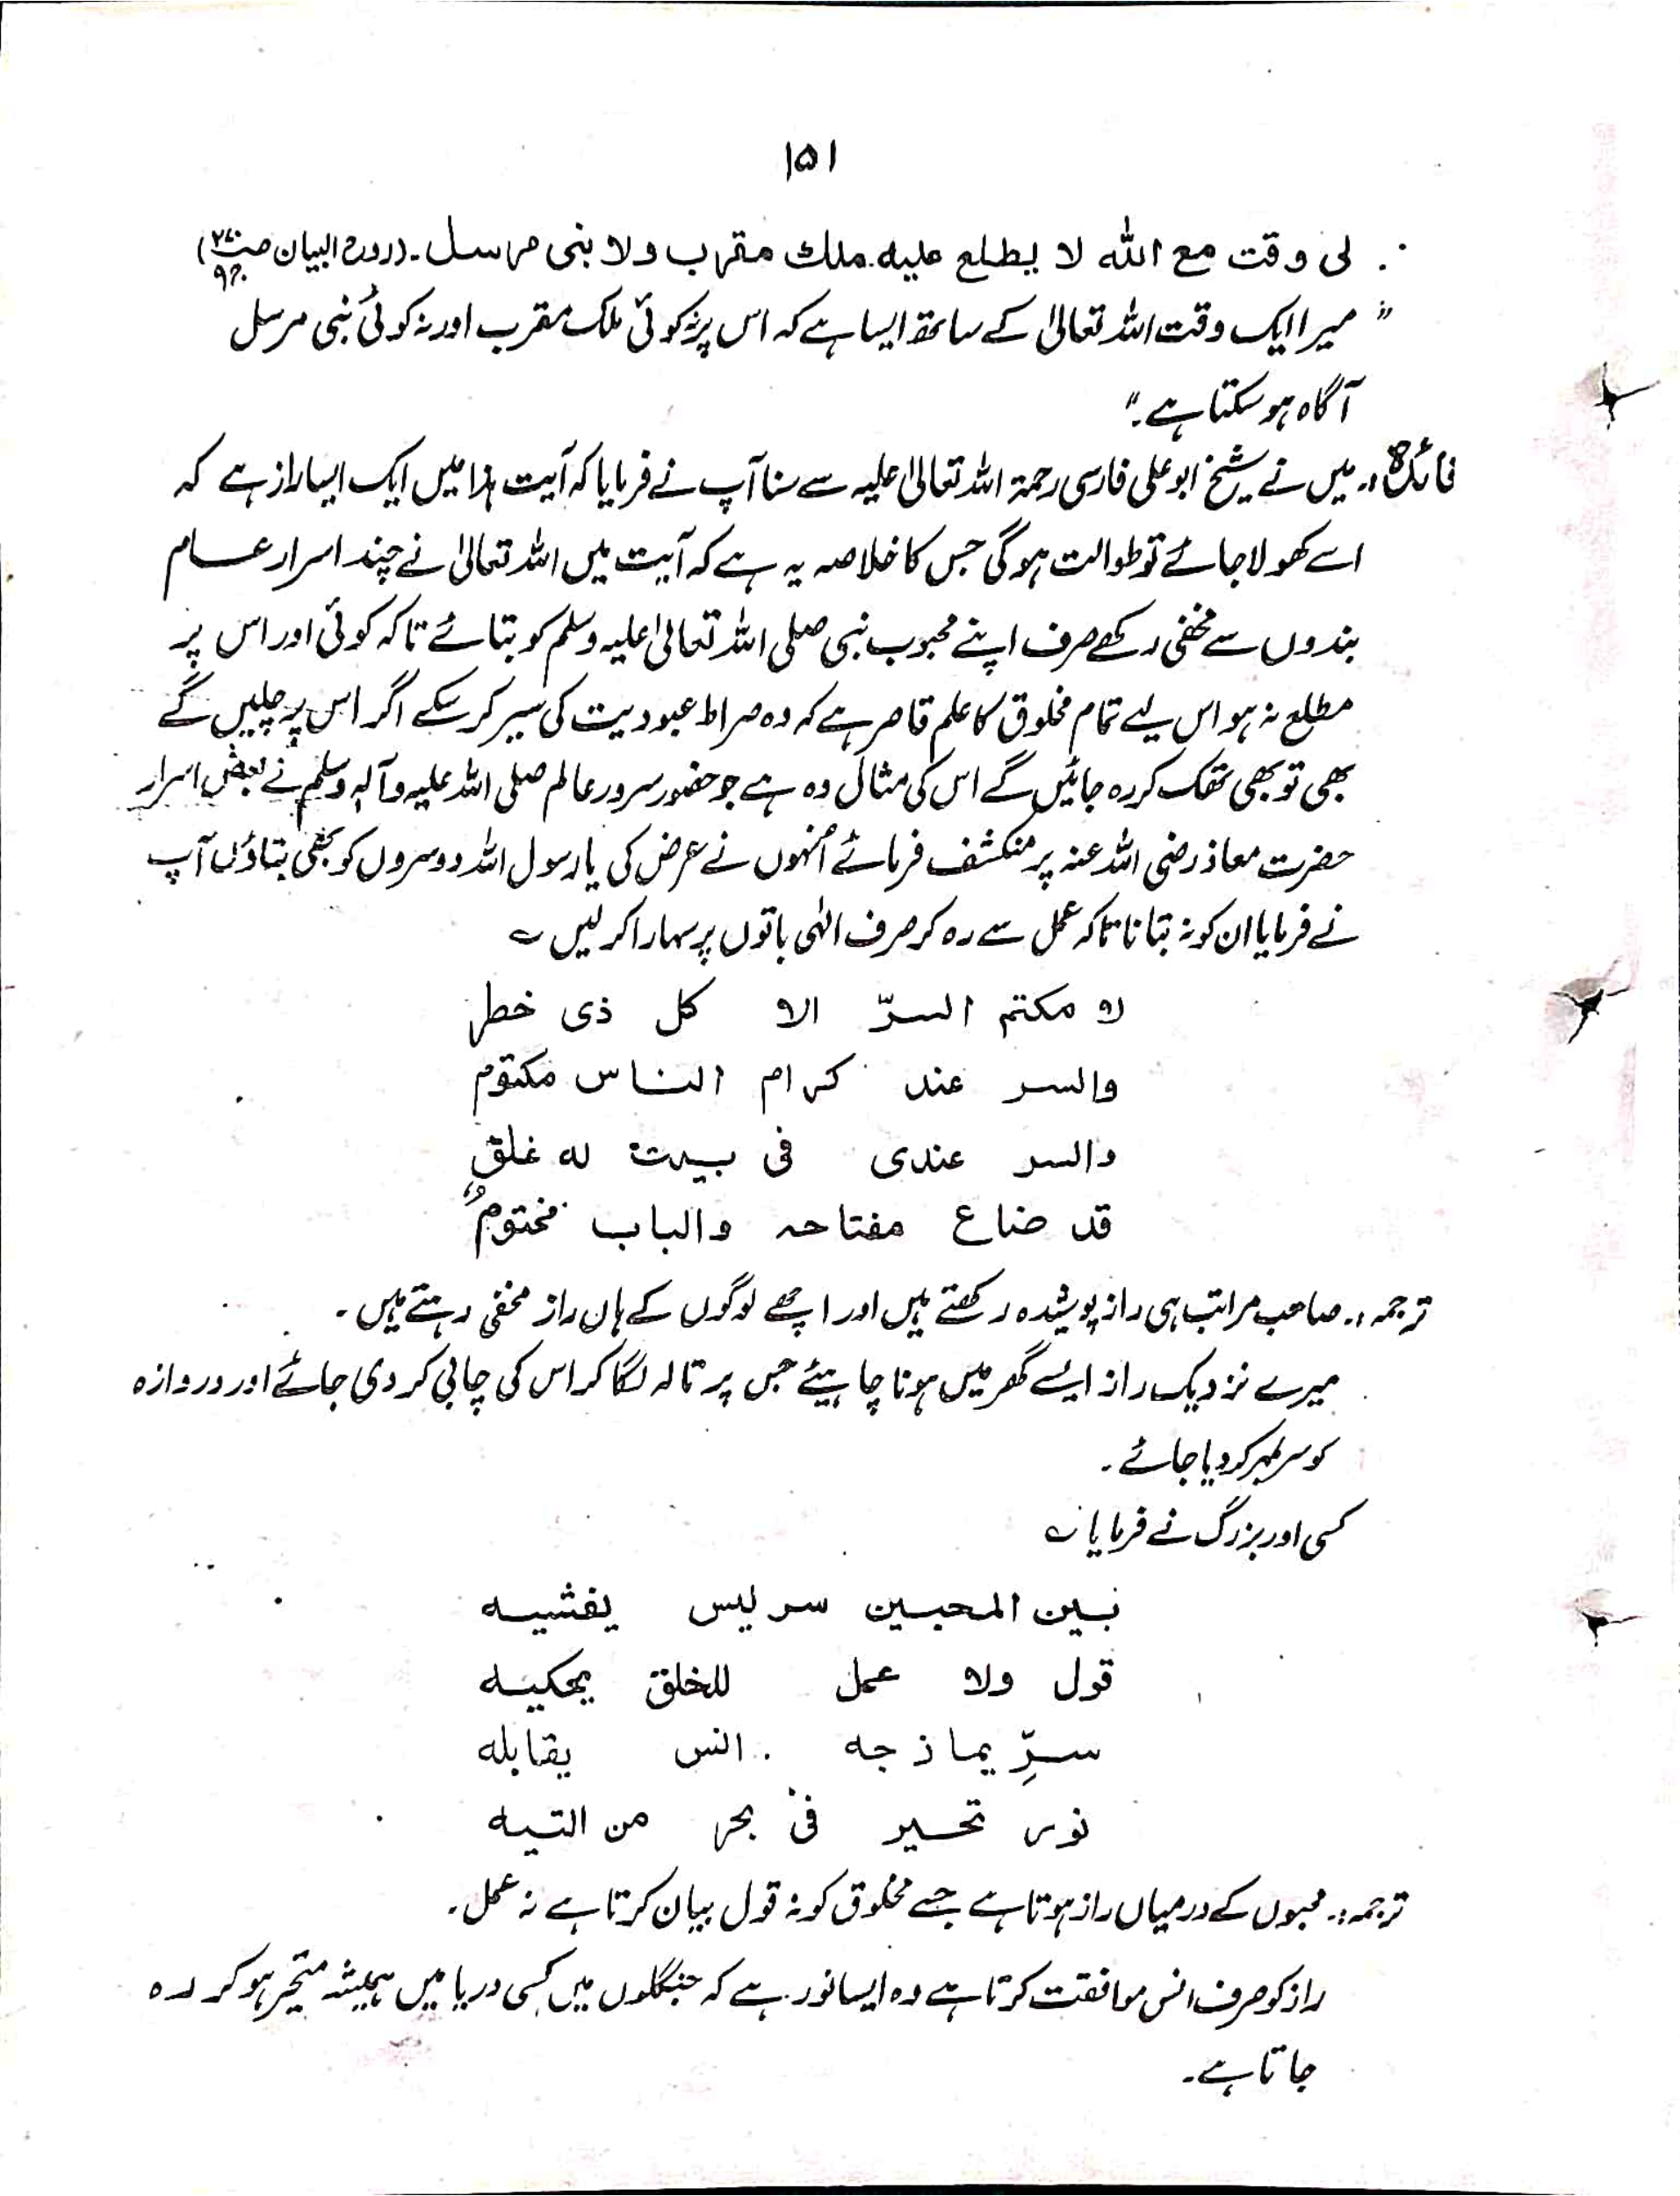 ۱۵۱
لی وقت مع اللہ لا یطلع علیہ ملك مقرب ولا بنی مرسل۔ (روح البیان
" میرا ایک وقت اللہ تعالیٰ کے ساتھ ایسا ہے کہ اس پر نہ کوئی ملک مقرب اور نہ کوئی نبی مرسل
آگاہ ہو سکتا ہے۔"
فائدہ:۔ میں نے شیخ ابو علی فارسی رحمۃ اللہ تعالیٰ علیہ سے سنا آپ نے فرمایا کہ آیت ہذا میں ایک ایسا راز ہے کہ
اسے کھولا جائے تو طوالت ہوگی جس کا خلاصہ یہ ہے کہ آیت میں اللہ تعالیٰ نے چند اسرار عام
بندوں سے مخفی رکھے صرف اپنے محبوب نبی صلی اللہ تعالیٰ علیہ وسلم کو بتائے تاکہ کوئی اور اس پر
مطلع نہ ہو اس لیے تمام مخلوق کا علم قاصر ہے کہ وہ صراط عبودیت کی سیر کر سکے اگر اس پر چلیں گے
بھی تو بھی تھک کر رہ جائیں گے اس کی مثال وہ ہے جو حضور سرور عالم صلی اللہ علیہ وآلہ وسلم نے بعض اسرار
حضرت معاذ رضی اللہ عنہ پر منکشف فرمائے اُنہوں نے عرض کی یا رسول اللہ دوسروں کو بھی بتاؤں آپ
نے فرمایا ان کو نہ بتانا تاکہ عمل سے رہ کر صرف انہی باتوں پر سہارا کر لیں ؎
لا مکتم السرّ الا کل ذی خطر
والسر عند کرام الناس مکتوم
والسر عندی فی بیت لہ غلق
قد ضاع مفتاحہ والباب مختومٌ
ترجمہ:۔ صاحب مراتب ہی راز پوشیدہ رکھتے ہیں اور اچھے لوگوں کے ہاں راز مخفی رہتے ہیں۔
میرے نزدیک راز ایسے گھر میں ہونا چاہیئے جس پر تالہ لگا کر اس کی چابی کر دی جائے اور دروازہ
کو سربمہر کر دیا جائے۔
کسی اور بزرگ نے فرمایا ؎
بین المحبین سر لیس یفشیہ
قول ولا عمل للخلق یحکیہ
سرِّ یماذجہ انس یقابلہ
نور تحیر فی بحر من التیہ
ترجمہ:۔ محبوں کے درمیاں راز ہوتا ہے جسے مخلوق کو نہ قول بیان کرتا ہے نہ عمل۔
راز کو صرف انس موافقت کرتا ہے وہ ایسا نور ہے کہ جنگلوں میں کسی دریا میں ہمیشہ متحیر ہو کر رہ
جاتا ہے۔